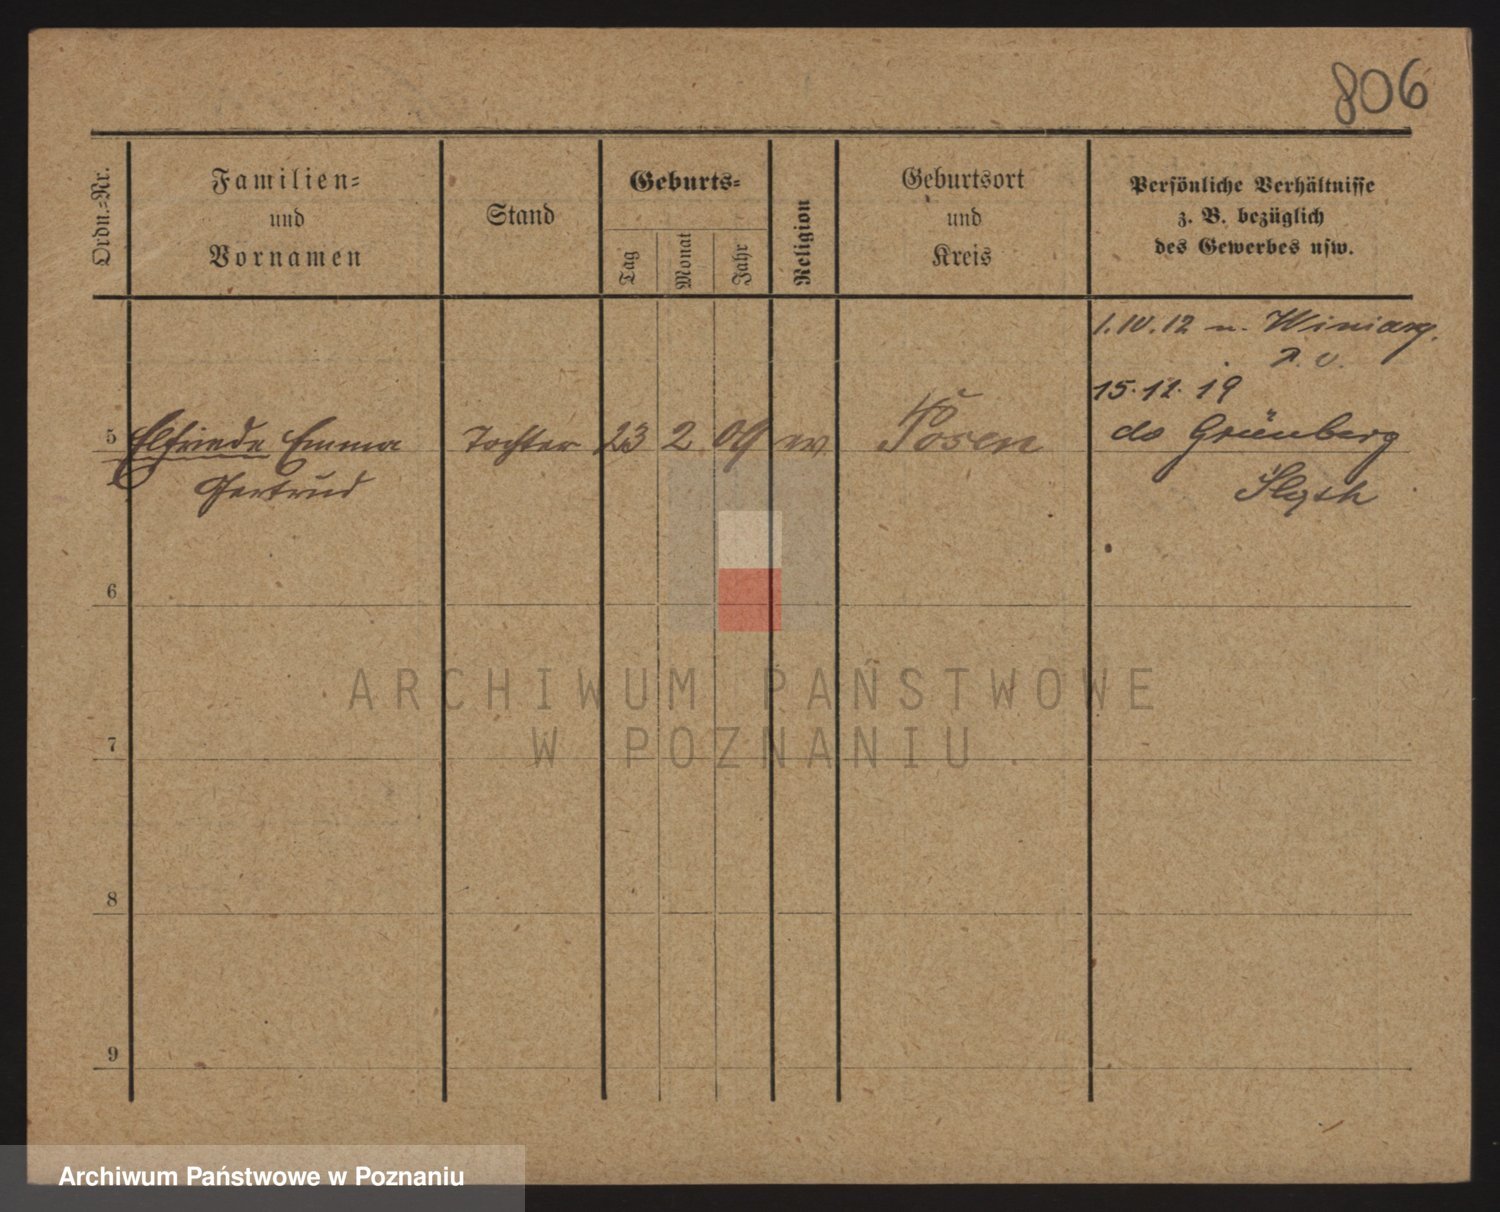 806
Ordn.-Nr.
Familien-
und
Vornamen
Stand
Geburts-
Tag
Monat
Jahr
Religion
Geburtsort
und
Kreis
Persönliche Verhältnisse
z. B. bezüglich
des Gewerbes usw.
1.10.12 n. Winiary.
15.12.19
5 Elfriede Emma Tochter 23 2 09 ev Posen do Grünberg
Gertrud
6
7
8
9
ARCHIWUM PAŃSTWOWE
W POZNANIU
Archiwum Państwowe w Poznaniu